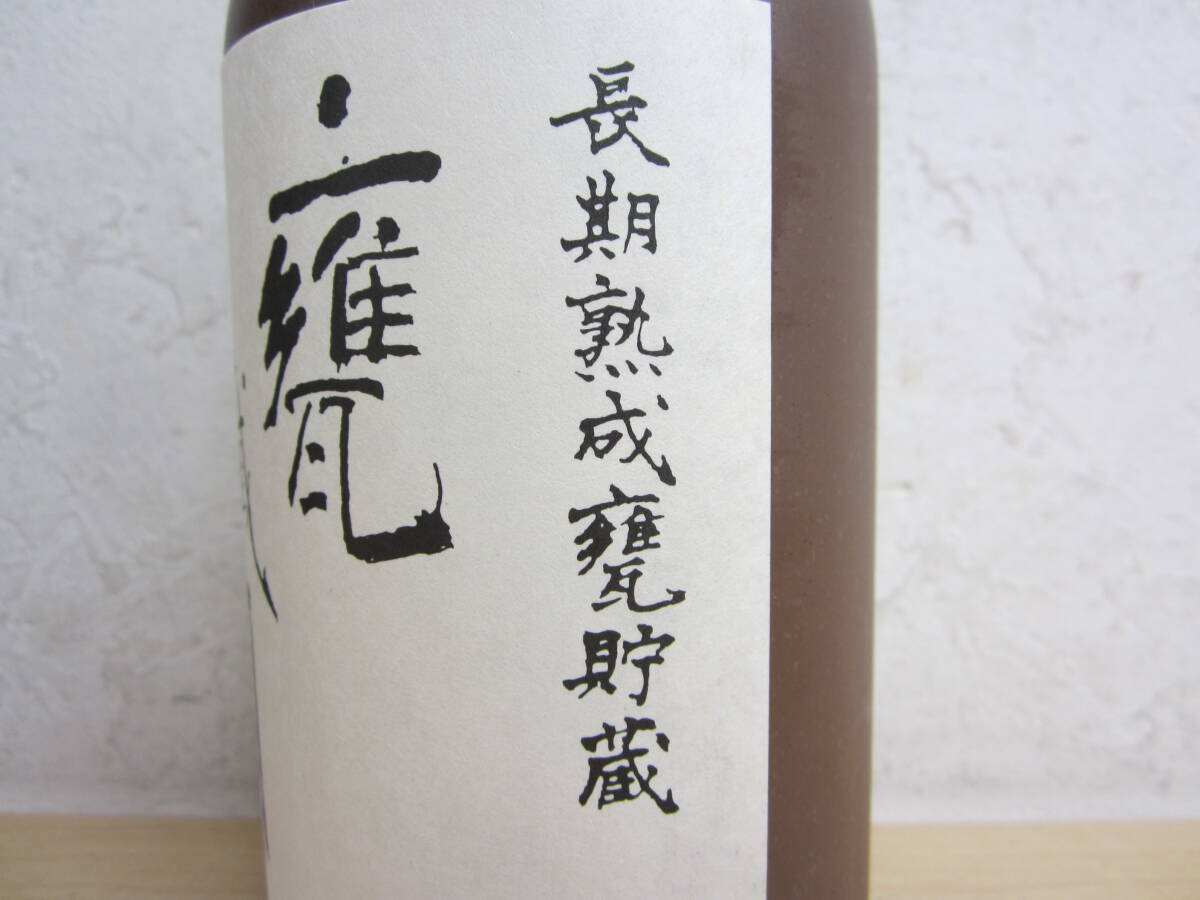 長期熟成甕貯蔵
甕